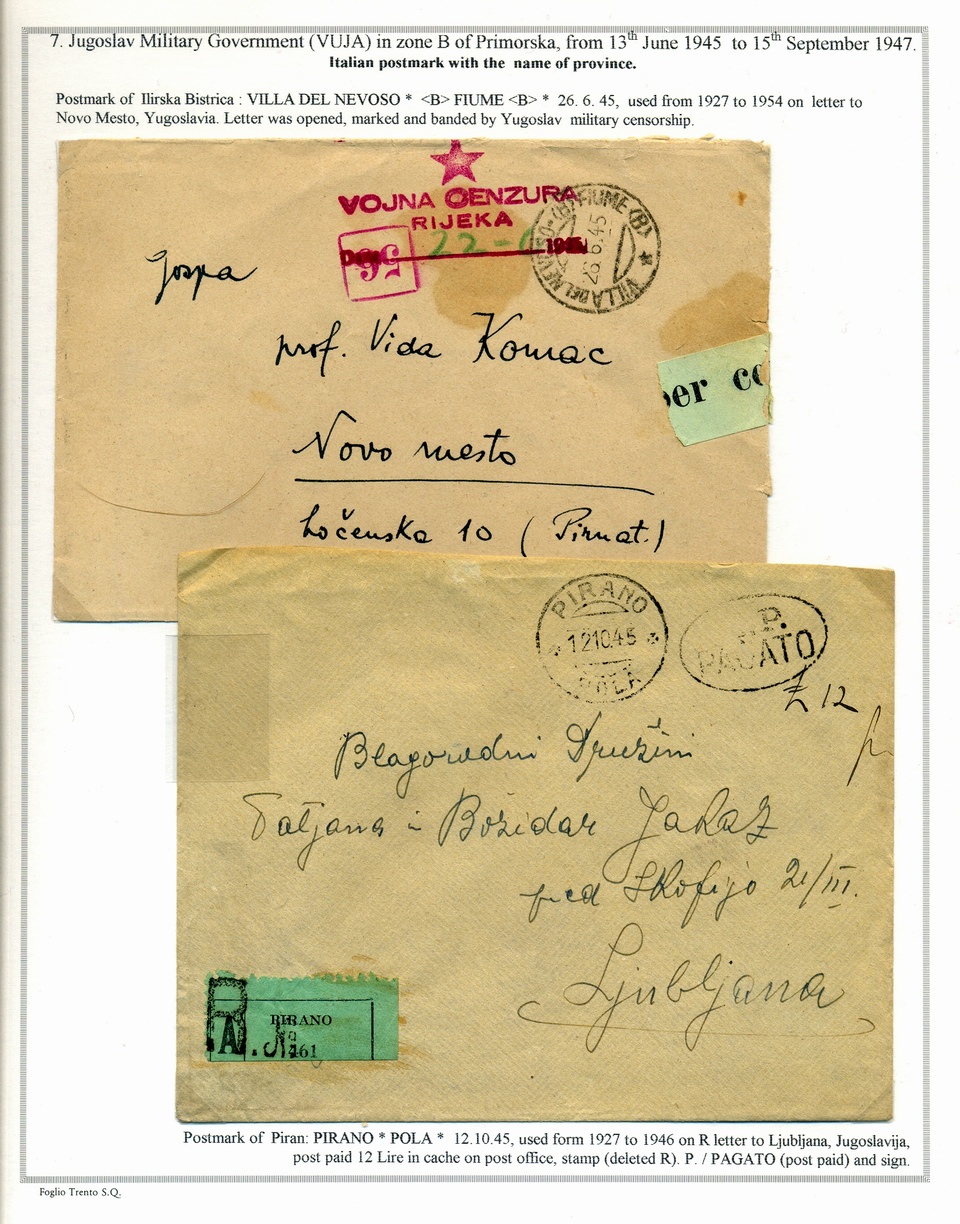 7. Jugoslav Military Government (VUJA) in zone B of Primorska, from 13th June 1945 to 15th September 1947.
Italian postmark with the name of province.
Postmark of Ilirska Bistrica : VILLA DEL NEVOSO * <B> FIUME <B> * 26. 6. 45, used from 1927 to 1954 on letter to
Novo Mesto, Yugoslavia. Letter was opened, marked and banded by Yugoslav military censorship.
VOJNA CENZURA
RIJEKA
22-6 1945
56
VILLA DEL NEVOSO-(B) FIUME (B) *
26.6.45
Gospa
prof. Vida Komac
per co
Novo mesto
Ločenska 10 (Pirnat.)
PIRANO
12.10.45
POLA
P.
PAGATO
£ 12
Blagorodni Družini
Tatjana i Božidar Jakac
pred Škofijo 21/III.
Ljubljana
PIRANO
A. No
461
Postmark of Piran: PIRANO * POLA * 12.10.45, used form 1927 to 1946 on R letter to Ljubljana, Jugoslavija,
post paid 12 Lire in cache on post office, stamp (deleted R). P. / PAGATO (post paid) and sign.
Foglio Trento S.Q.